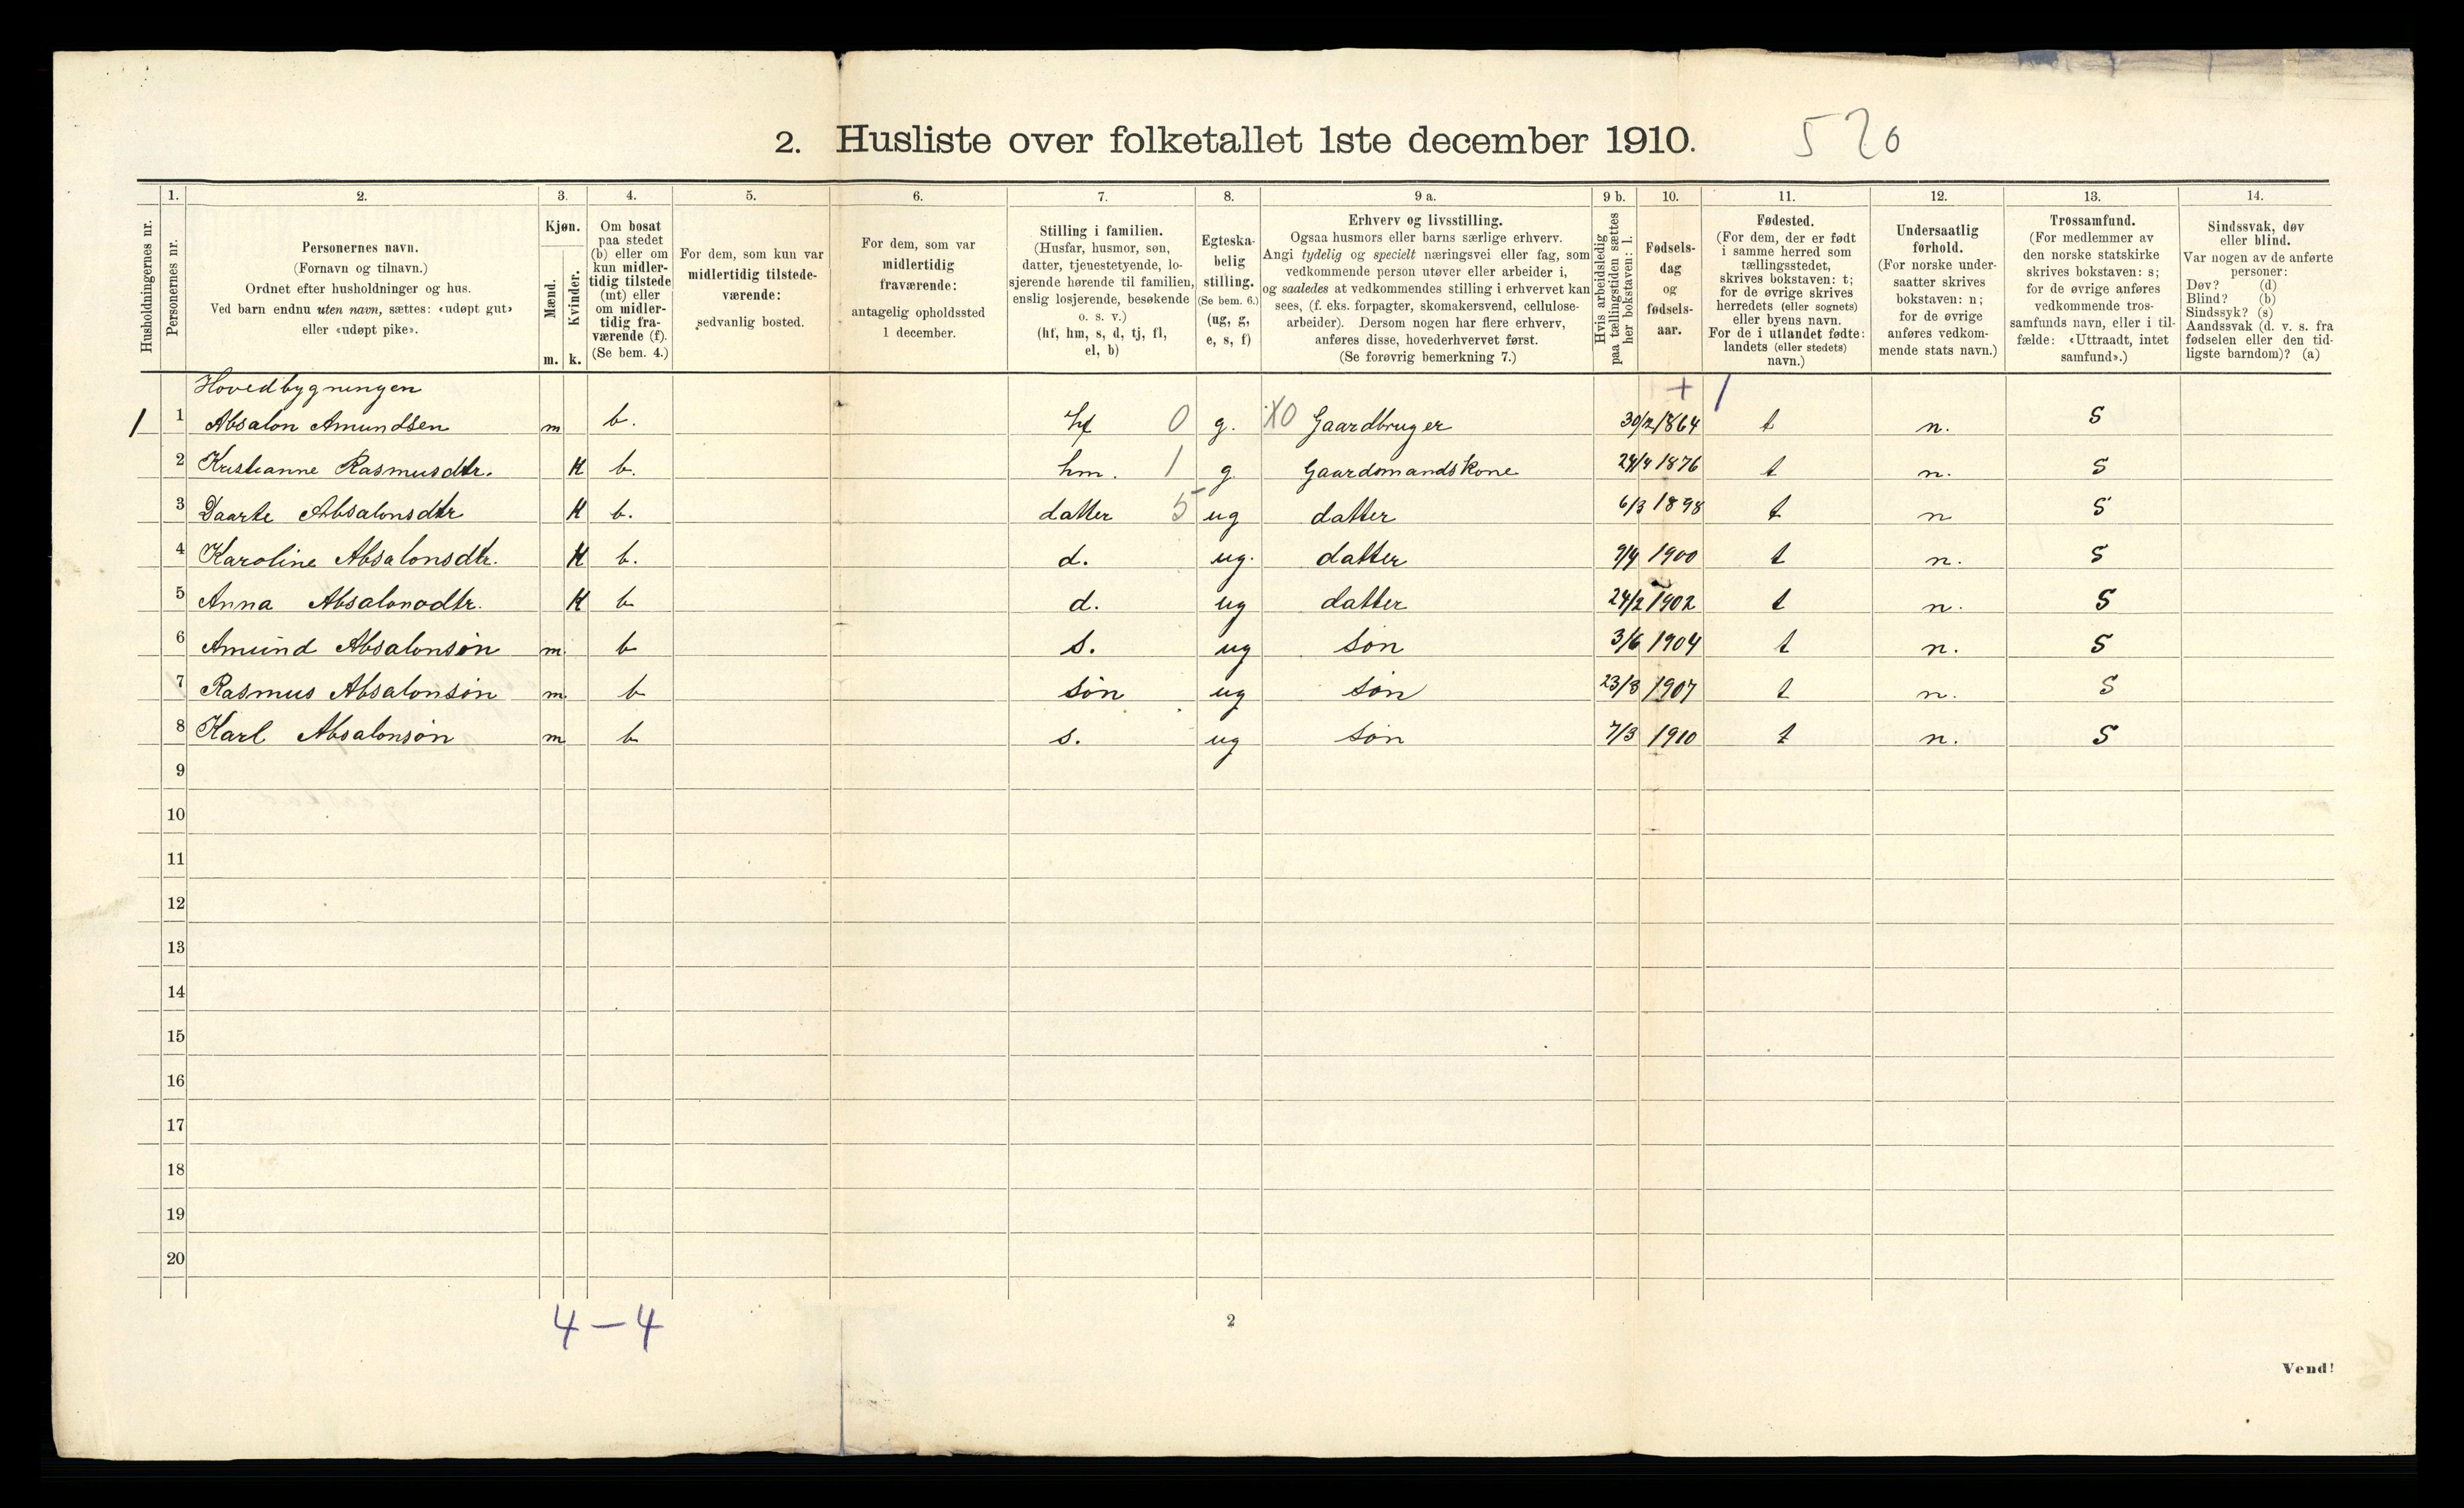 2. Husliste over folketallet 1ste december 1910. 520
Husholdningernes nr.
1. Personernes nr.
2. Personernes navn. (Fornavn og tilnavn.) Ordnet efter husholdninger og hus. Ved barn endnu uten navn, sættes: «udøpt gut» eller «udøpt pike».
3. Kjøn. Mænd. m. Kvinder. k.
4. Om bosat paa stedet (b) eller om kun midlertidig tilstede (mt) eller om midlertidig fraværende (f). (Se bem. 4.)
5. For dem, som kun var midlertidig tilstedeværende: sedvanlig bosted.
6. For dem, som var midlertidig fraværende: antagelig opholdssted 1 december.
7. Stilling i familien. (Husfar, husmor, søn, datter, tjenestetyende, losjerende hørende til familien, enslig losjerende, besøkende o. s. v.) (hf, hm, s, d, tj, fl, el, b)
8. Egteskabelig stilling. (Se bem. 6.) (ug, g, e, s, f)
9 a. Erhverv og livsstilling. Ogsaa husmors eller barns særlige erhverv. Angi tydelig og specielt næringsvei eller fag, som vedkommende person utøver eller arbeider i, og saaledes at vedkommendes stilling i erhvervet kan sees, (f. eks. forpagter, skomakersvend, cellulosearbeider). Dersom nogen har flere erhverv, anføres disse, hovederhvervet først. (Se forøvrig bemerkning 7.)
9 b. Hvis arbeidsledig paa tællingstiden sættes her bokstaven: l.
10. Fødselsdag og fødselsaar.
11. Fødested. (For dem, der er født i samme herred som tællingsstedet, skrives bokstaven: t; for de øvrige skrives herredets (eller sognets) eller byens navn. For de i utlandet fødte: landets (eller stedets) navn.)
12. Undersaatlig forhold. (For norske undersaatter skrives bokstaven: n; for de øvrige anføres vedkommende stats navn.)
13. Trossamfund. (For medlemmer av den norske statskirke skrives bokstaven: s; for de øvrige anføres vedkommende trossamfunds navn, eller i tilfælde: «Uttraadt, intet samfund».)
14. Sindssvak, døv eller blind. Var nogen av de anførte personer: Døv? (d) Blind? (b) Sindssyk? (s) Aandssvak (d. v. s. fra fødselen eller den tidligste barndom)? (a)
Hovedbygningen + 1
1 1 Absalon Amundsen m b. hf 0 g. X0 Gaardbruger 30/2 1864 t n. S
2 Kristianne Rasmusdtr. K b. hm. 1 g Gaardmandskone 24/4 1876 t n. S
3 Daarte Absalonsdtr K b. datter 5 ug datter 6/3 1898 t n S
4 Karoline Absalonsdtr. K b. d. ug. datter 9/4 1900 t n. S
5 Anna Absalonsdtr. K b d. ug datter 24/2 1902 t n. S
6 Amund Absalonsøn m. b s. ug søn 3/6 1904 t n. S
7 Rasmus Absalonsøn m. b søn ug søn 23/8 1907 t n. S
8 Karl Absalonsøn m b s. ug søn 7/3 1910 t n. S
9
10
11
12
13
14
15
16
17
18
19
20
4 — 4
2
Vend!